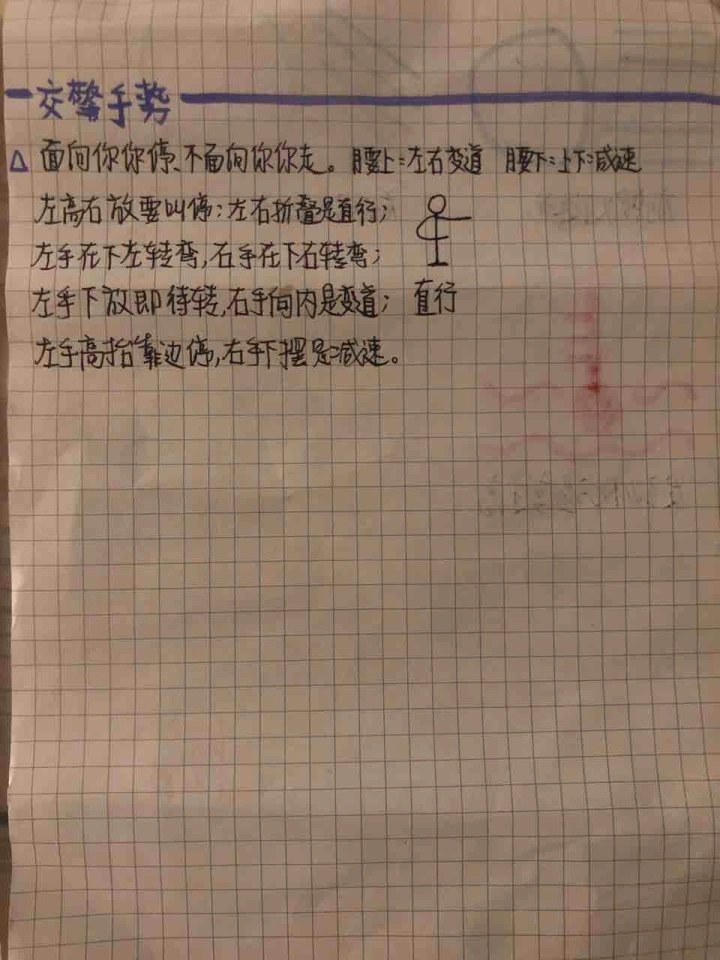 交警手势
△ 面向你你停、不面向你你走。腰上=左右变道 腰下=上下减速
左高右放要叫停;左右折叠是直行;
左手在下左转弯,右手在下右转弯;
左手下放即待转,右手向内是变道; 直行
左手高抬靠边停,右手下摆是减速。